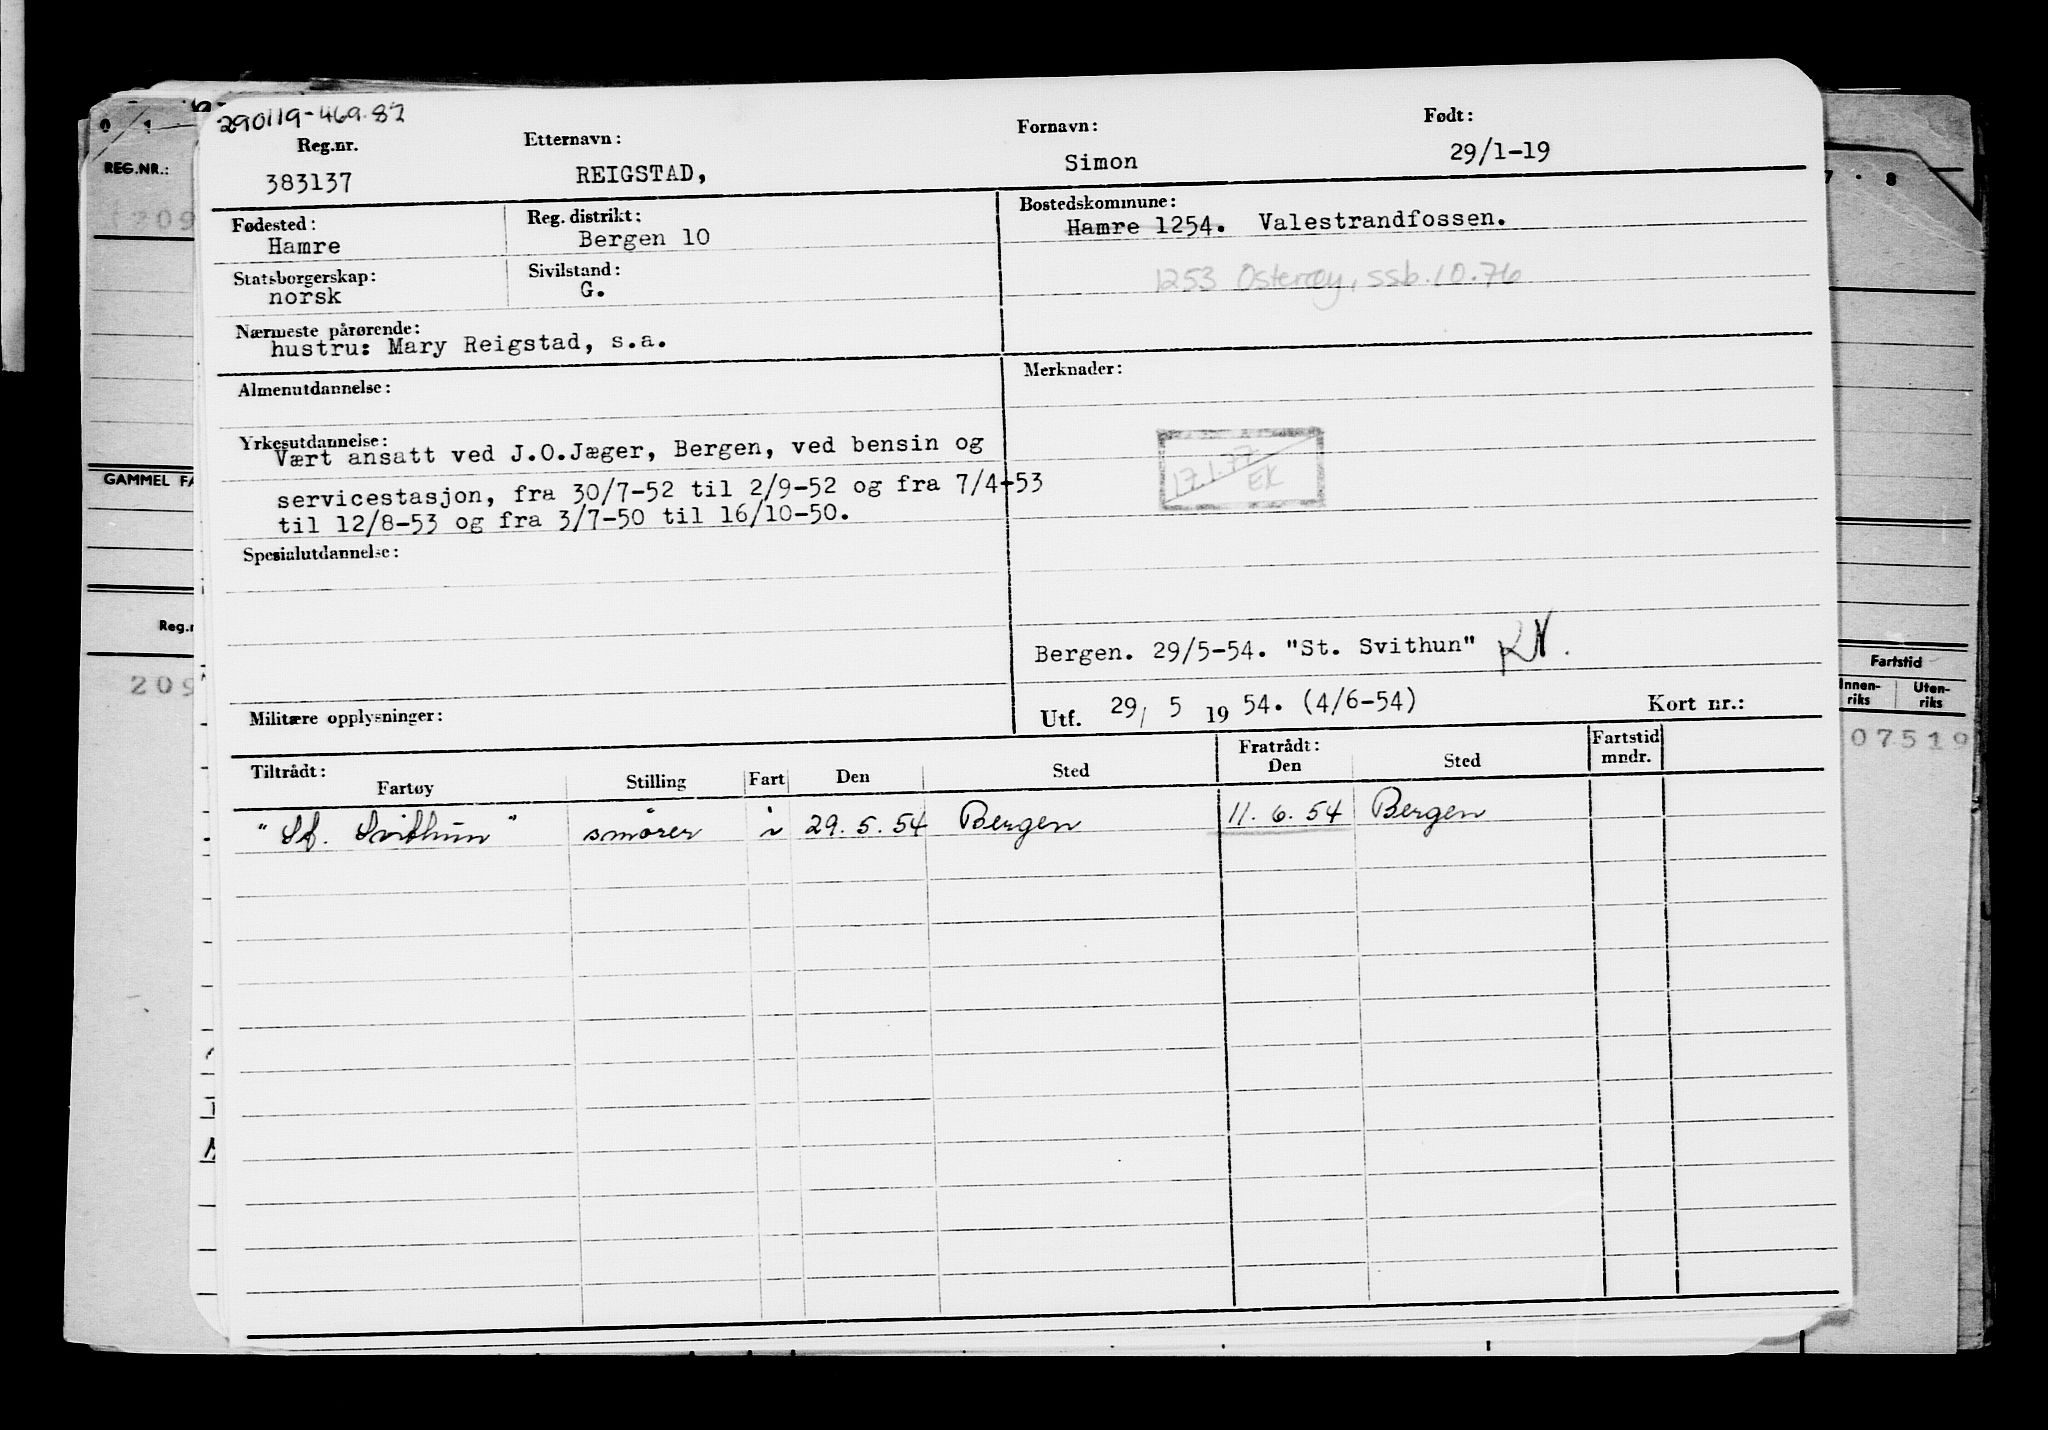 290119-469.87
Reg.nr. Etternavn: Fornavn: Født:
383137 REIGSTAD, Simon 29/1-19
Fødested: Reg. distrikt: Bostedskommune:
Hamre Bergen 10 Hamre 1254. Valestrandfossen.
Statsborgerskap: Sivilstand: 1253 Osterøy, ssb. 10.76
norsk G.
Nærmeste pårørende:
hustru: Mary Reigstad, s.a.
Almenutdannelse: Merknader:
Yrkesutdannelse:
Vært ansatt ved J.O.Jæger, Bergen, ved bensin og
servicestasjon, fra 30/7-52 til 2/9-52 og fra 7/4-53
til 12/8-53 og fra 3/7-50 til 16/10-50.
17.1.77
EK
Spesialutdannelse:
Bergen. 29/5-54. "St. Svithun"
Militære opplysninger: Utf. 29/ 5 19 54. (4/6-54) Kort nr.:
Tiltrådt: Fratrådt: Fartstid
Fartøy Stilling Fart Den Sted Den Sted mndr.
"St. Svithun" smører i 29.5.54 Bergen 11.6.54 Bergen
REG.NR.:
209
GAMMEL FA
Reg.n
209
7 . 8
Fartstid
Innen-riks Uten-riks
07519